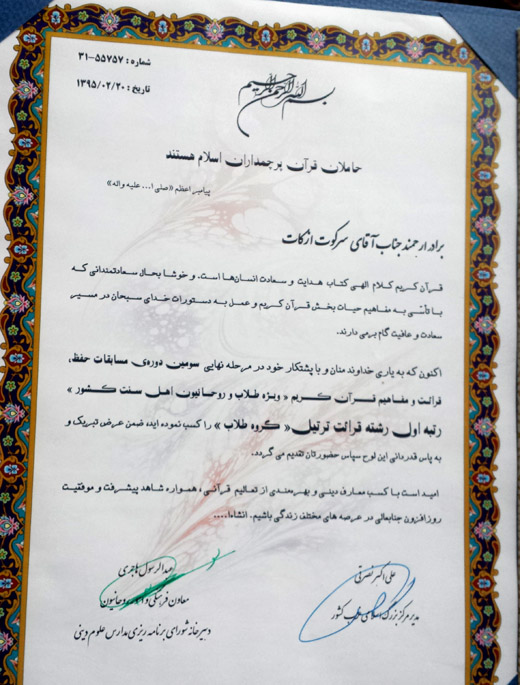 شماره : ۵۵۷۵۷-۳۱
تاریخ : ۱۳۹۵/۰۲/۲۰
بسم الله الرحمن الرحیم
حاملان قرآن پرچمداران اسلام هستند
پیامبر اعظم «صلی ا... علیه واله»
برادر ارجمند جناب آقای سرکوت ازکات
قرآن کریم کلام الهی کتاب هدایت و سعادت انسان‌ها است. و خوشا بحال سعادتمندانی که
با تأسّی به مفاهیم حیات بخش قرآن کریم و عمل به دستورات خدای سبحان در مسیر
سعادت و عاقبت گام برمی دارند.
اکنون که به یاری خداوند منان و با پشتکار خود در مرحله نهایی سومین دوره‌ی مسابقات حفظ،
قرائت و مفاهیم قرآن کریم « ویژه طلاب و روحانیون اهل سنت کشور »
رتبه اول رشته قرائت ترتیل « گروه طلاب » را کسب نموده اید، ضمن عرض تبریک و
به پاس قدردانی این لوح سپاس حضورتان تقدیم می گردد.
امید است با کسب معارف دینی و بهره‌مندی از تعالیم قرآنی، همواره شاهد پیشرفت و موفقیت
روزافزون جنابعالی در عرصه های مختلف زندگی باشیم. انشاءا....
علی اکبر نصرتی
مدیر مرکز بزرگ اسلامی غرب کشور
عبدالرسول هاجری
معاون فرهنگی و امور روحانیون
دبیرخانه شورای برنامه ریزی مدارس علوم دینی